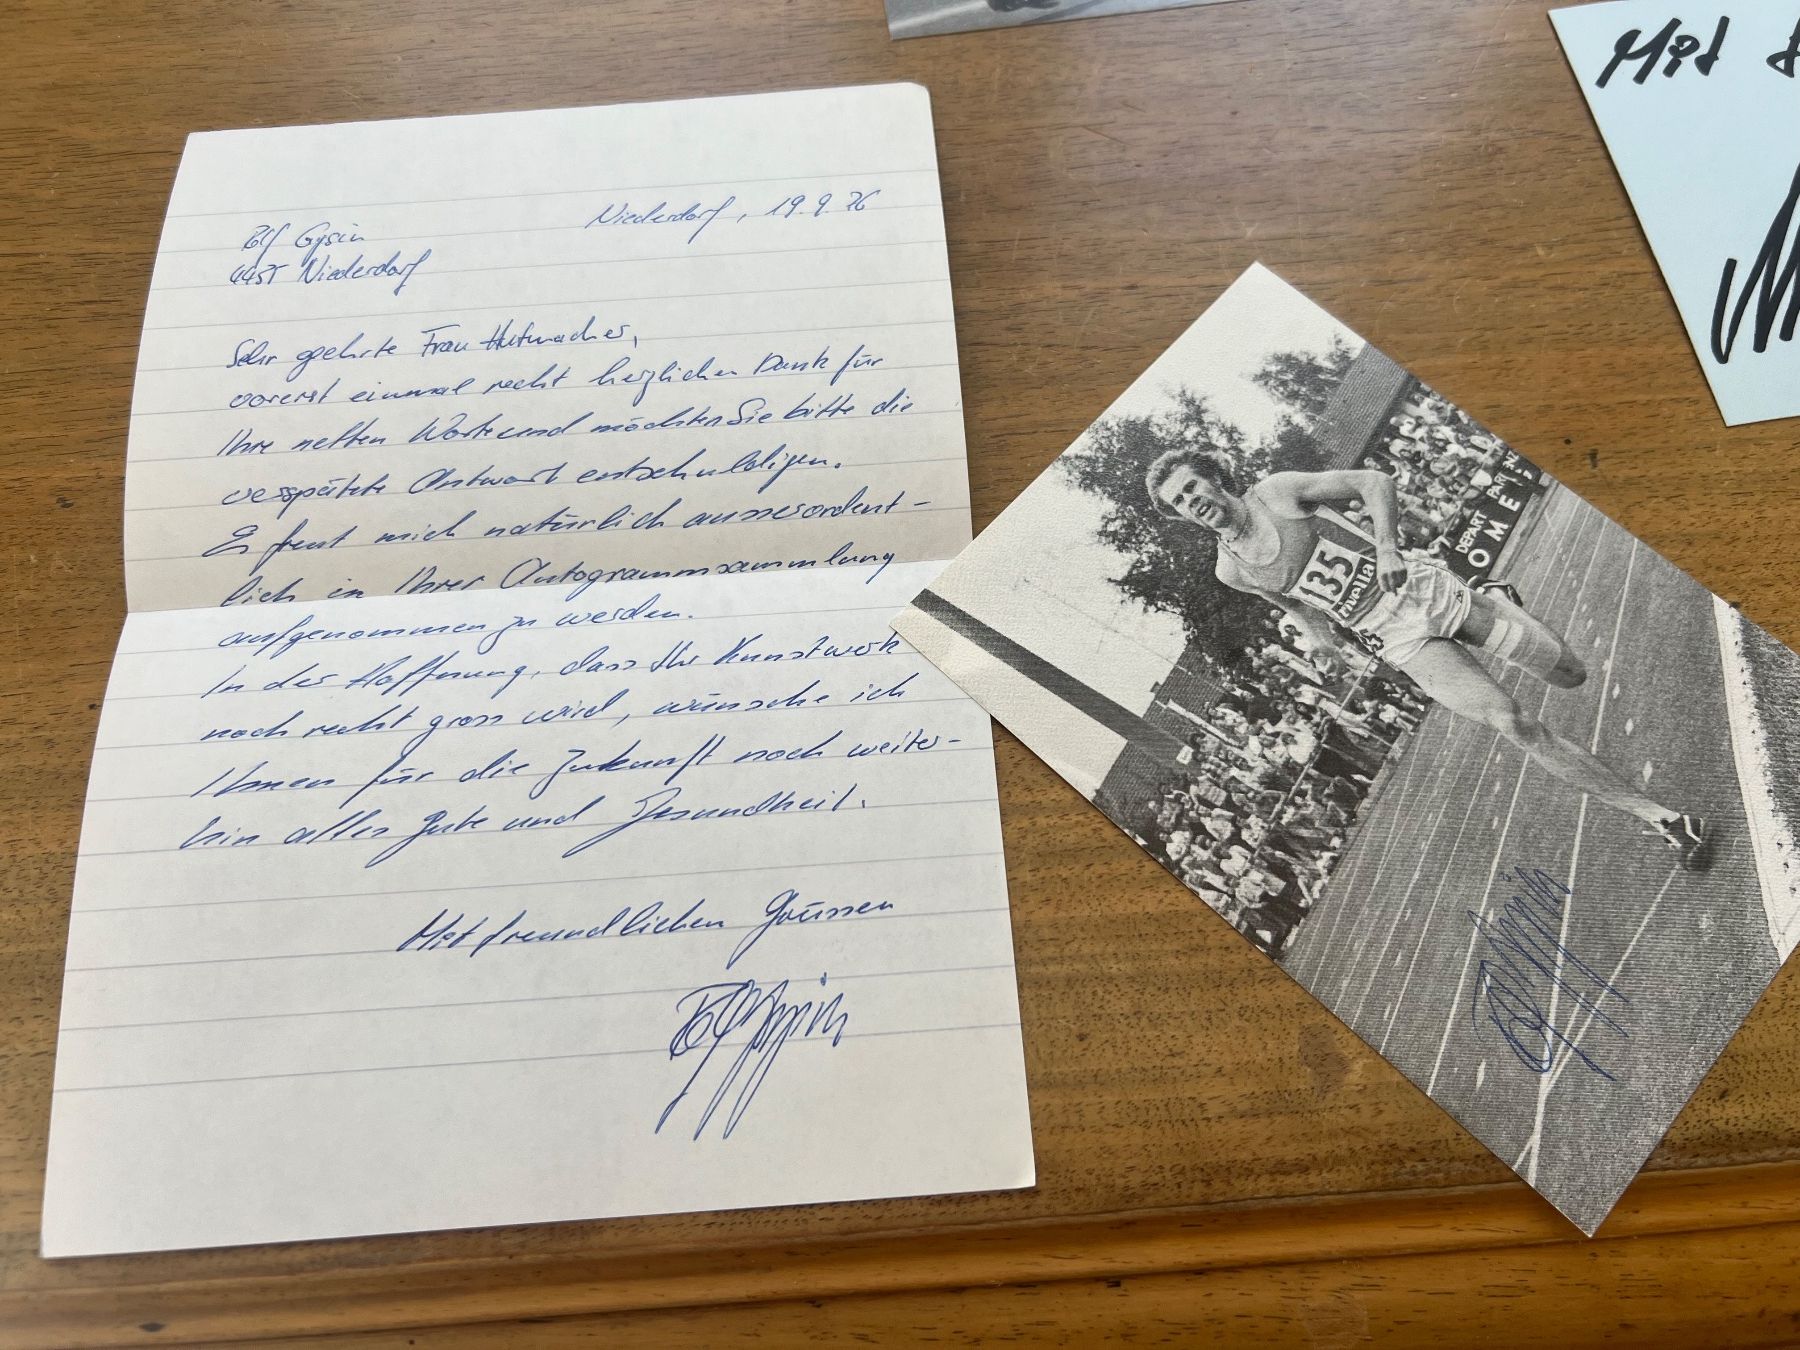 Rolf Gysin
4435 Niederdorf
Niederdorf, 19.9.76
Sehr geehrte Frau Hutmacher,
vorerst einmal recht herzlichen Dank für
Ihre netten Worte und möchten Sie bitte die
verspätete Antwort entschuldigen.
Es freut mich natürlich ausserordent-
lich in Ihrer Autogrammsammlung
aufgenommen zu werden.
In der Hoffnung, dass Ihr Kunstwerk
noch recht gross wird, wünsche ich
Ihnen für die Zukunft noch weiter-
hin alles Gute und Gesundheit.
Mit freundlichen Grüssen
Rolf Gysin
135
rivella
DEPART PAR
OME
Rolf Gysin
Mit